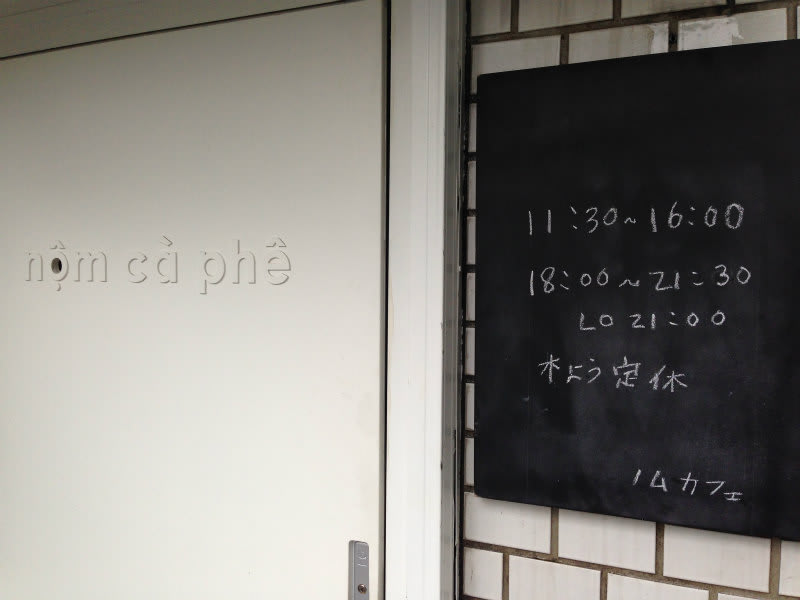 nộm cà phê
11:30~16:00
18:00~21:30
LO 21:00
木よう定休
ノムカフェ